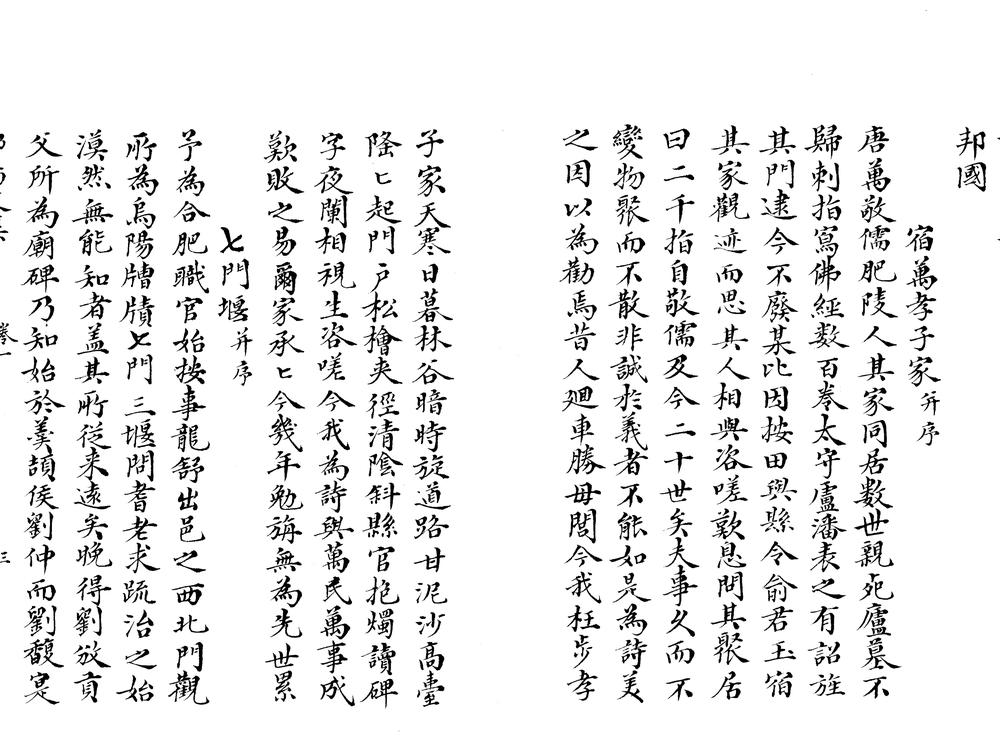 邦國
宿萬孝子家并序
唐萬敬儒肥陵人其家同居數世親死廬墓不
歸刺指寫佛經数百卷太守盧潘表之有詔旌
其門逮今不廢某比因按田與縣令俞君玉宿
其家觀迹而思其人相與咨嗟歎息問其聚居
曰二千指自敬儒及今二十世矣夫事久而不
變物聚而不散非誠於義者不能如是為詩美
之因以為勸焉昔人廻車勝母閭今我枉步孝
子家天寒日暮林谷暗時旋道路甘泥沙高臺
隆匕起門戶松檜夾徑清陰斜縣官抱燭讀碑
字夜闌相視生咨嗟今我為詩與萬民萬事成
歎敗之易爾家承匕今幾年勉旃無為先世累
七門堰并序
予為合肥職官始按事龍舒出邑之西北門觀
所為烏陽牘七門三堰問耆老求疏治之始
漠然無能知者盖其所從来遠矣晚得劉攽貢
父所為廟碑乃知始於羹頡侯劉仲而劉馥寔
卷一
三